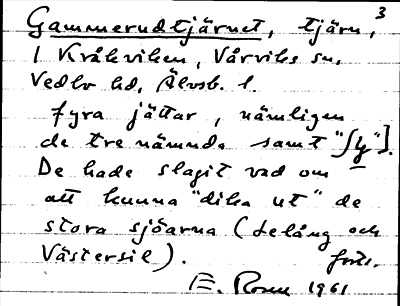 3
Gammerudtjärnet, tjärn,
i Kråkviken, Vårviks sn,
Vedbo hd, Älvsb. l.
fyra jättar, nämligen
de tre nämnda samt "Ly"].
De hade slagit vad om
att kunna "dika ut" de
stora sjöarna (Lelång och
Västersil).
forts.
E. Rosen 1961